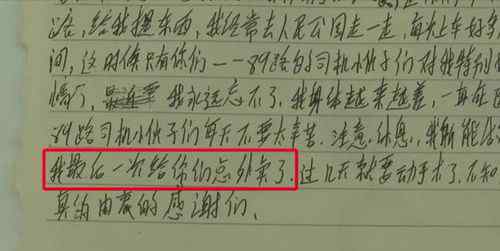 语,给我提东西,我经常去人民公园走一走,每次上车好多
间,这时候只有你们——89路的司机小伙子们对我特别
我永远忘不了,我身体越来越差,一直在
89路司机小伙子们每天不要太辛苦.注意.休息,我所能
我最后一次给你们点外卖了.过几天就要动手术了.不知
真的由衷的感谢们、